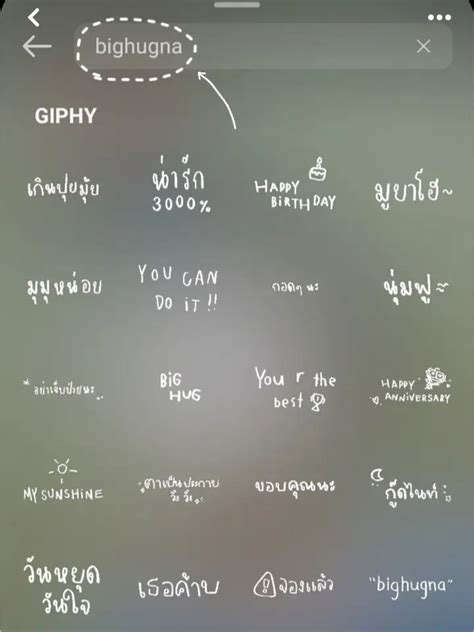 bighugna
GIPHY
เกินปุยมุ้ย
น่ารัก
3000%
HAPPY
BiRTHDAY
มูยาโฮ~
มุมุหน่อย
YOU CAN
DO iT !!
กอดๆ นะ
นุ่มฟู~
อย่าเจ็บป่วยนะ
BiG
HUG
You r the
best
HAPPY
ANNiVERSARY
MY SUNSHiNE
ตาเป็นประกาย
วิ้ง วิ้ง
ขอบคุณนะ
กู๊ดไนท์
วันหยุด
วันใจ
เธอค้าบ
จองแล้ว
"bighugna"